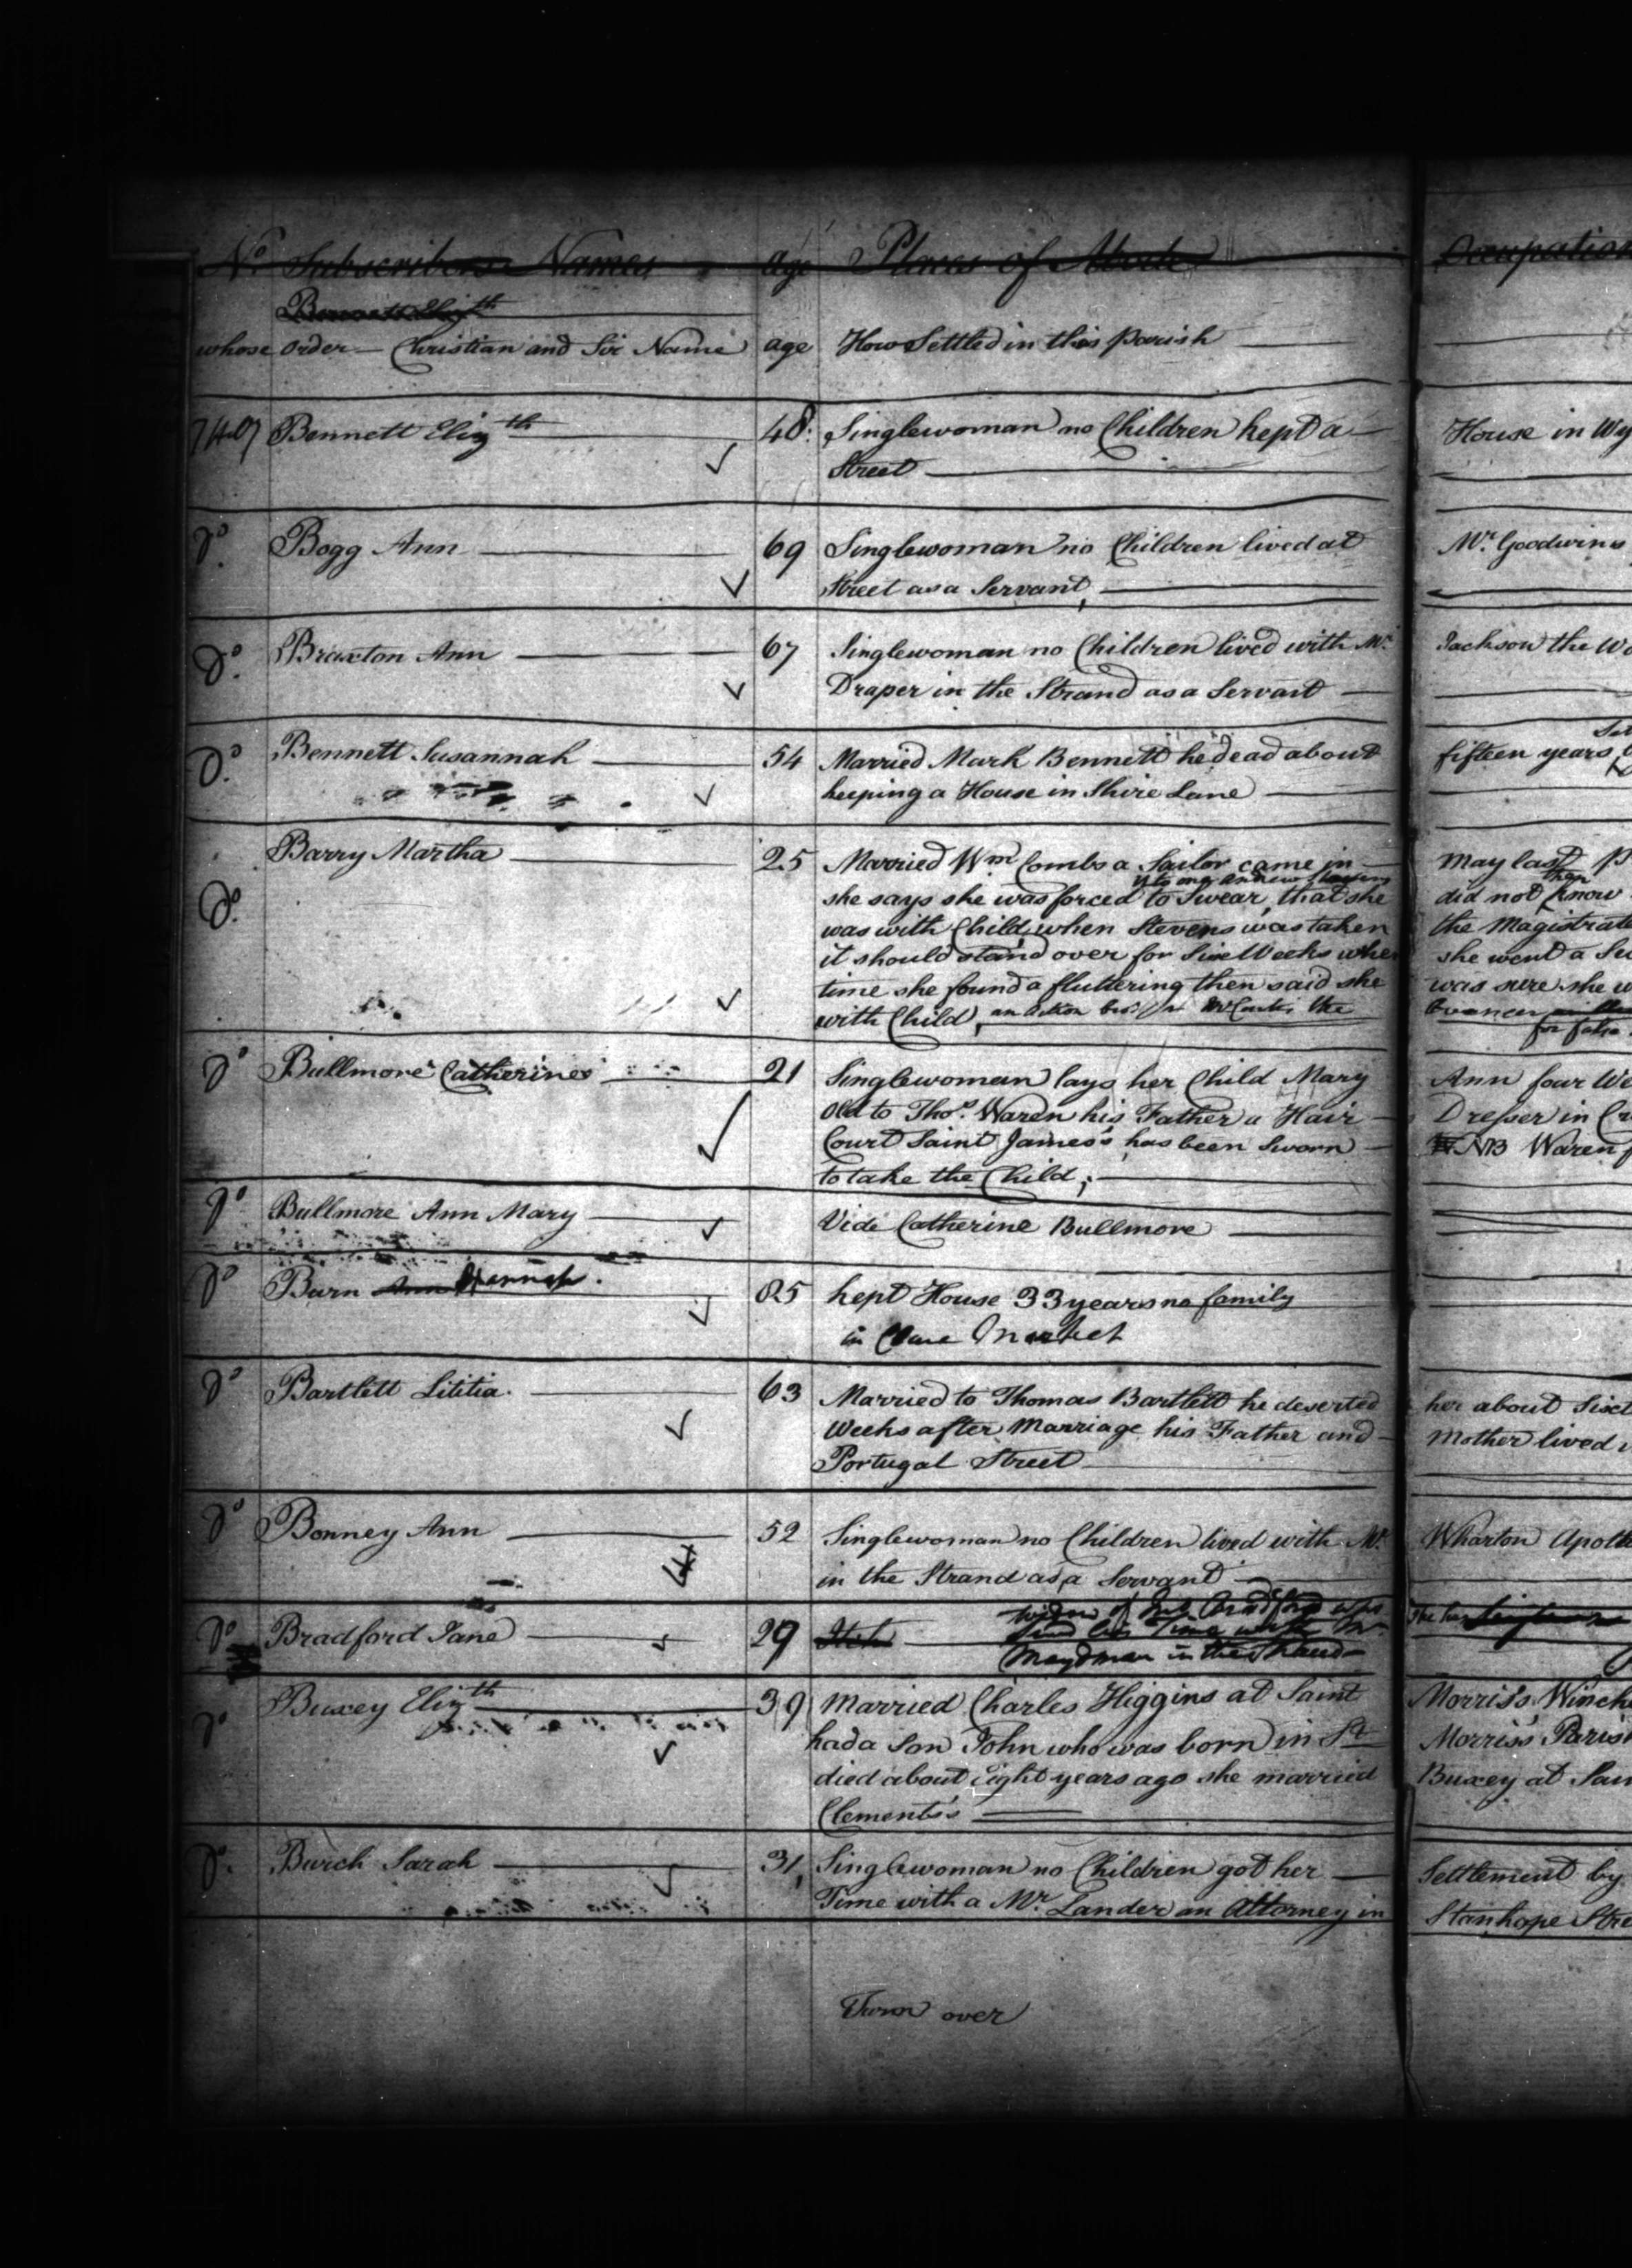 No Subscribers Names age Places of Abode Occupation
Bennett Elizth
whose order Christian and Sir Name age How Settled in this parish
Bennett Elizth 48 Singlewoman no Children kept a House in Wy
Street
Do Bogg Ann 69 Singlewoman no Children lived at Mr. Goodwins
Street as a Servant,
Do Braxton Ann 67 Singlewoman no Children lived with Mr. Jackson the Wo
Draper in the Strand as a Servant
Do Bennett Susannah 54 Married Mark Bennett he dead about fifteen years
keeping a House in Shire Lane
Do Barry Martha 25 Married Wm Combs a Sailor came in May last P
she says she was forced to Swear, that she did not then know
was with Child, when Stevens was taken the Magistrate
it should stand over for Six Weeks when she went a Se
time she found a fluttering then said she was sure she w
with Child, an Action
Do Bullmore Catherine 21 Singlewoman lays her Child Mary Ann four We
Old to Thos. Waren his Father a Hair Dresser in C
Court Saint James's has been Sworn NB Waren
to take the Child;
Do Bullmore Ann Mary Vide Catherine Bullmore
Do Burn Ann Hannah. 85 kept House 33 years no family
in Clare Market
Do Bartlett Lititia. 63 Married to Thomas Bartlett he deserted her about Sixt
Weeks after Marriage his Father and Mother lived
Portugal Street
Do Bonney Ann 52 Singlewoman no Children lived with Mr. Wharton Apoth
in the Strand as a Servant
Do Bradford Jane 29 widow of
Maydman in the Strand
Do Buxey Elizth 39 Married Charles Higgins at Saint Morris's Winch
had a Son John who was born in St Morris's Parish
died about Eight years ago she married Buxey at Sain
Clements's
Do. Burch Sarah 31 Singlewoman no Children got her Settlement by
Time with a Mr. Lander an Attorney in Stanhope Stre
Turn over